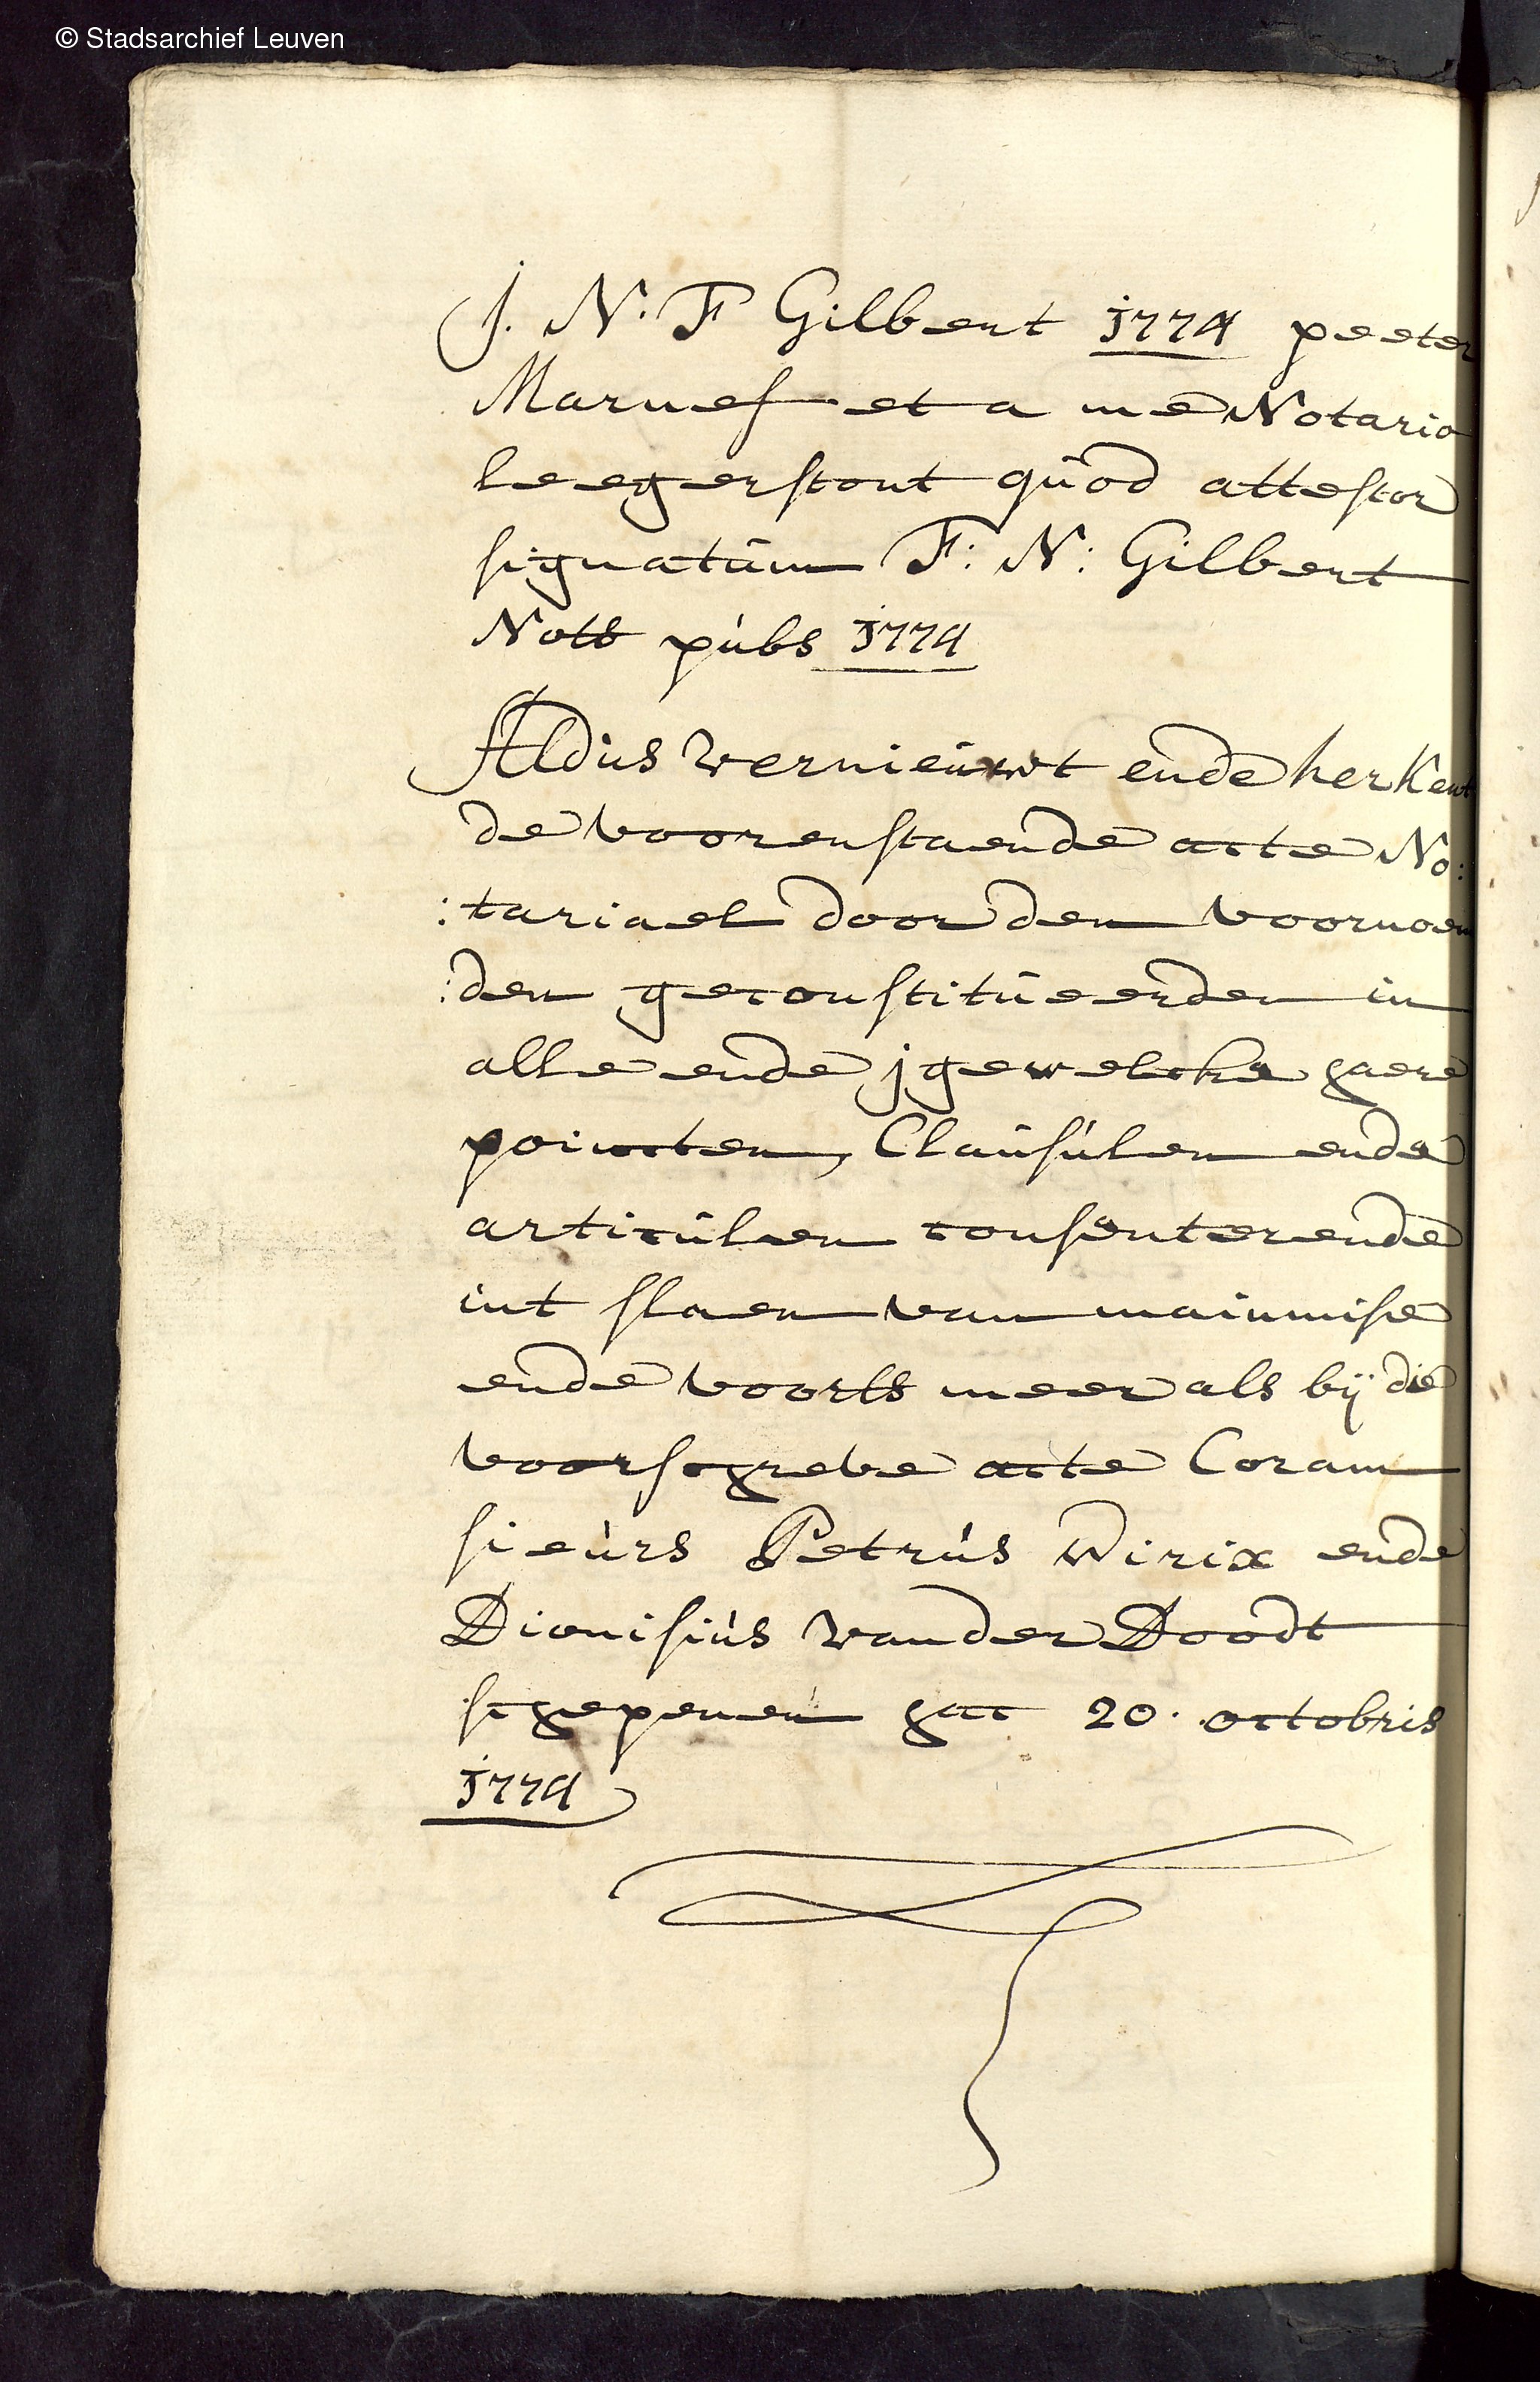 © Stadsarchief Leuven
J. N: F Gilbert 1774 peeter
Marnef et a me Notario
leegerstont quod attestor
signatum F: N: Gilbert
Nots pubs 1774
Aldus vernieuwt ende herkent
de voorenstaende acte No:
:tariael door den voornoem
:den geconstitueerden in
alle ende jgewelcke haere
poincten, Clausulen ende
articulen consenterende
int slaen van mainmise
ende voorts meer als bij die
voorschreve acte Coram
sieurs Petrus Wirix ende
Dionisius vander Doodt
schepenen hac 20. octobris
1774